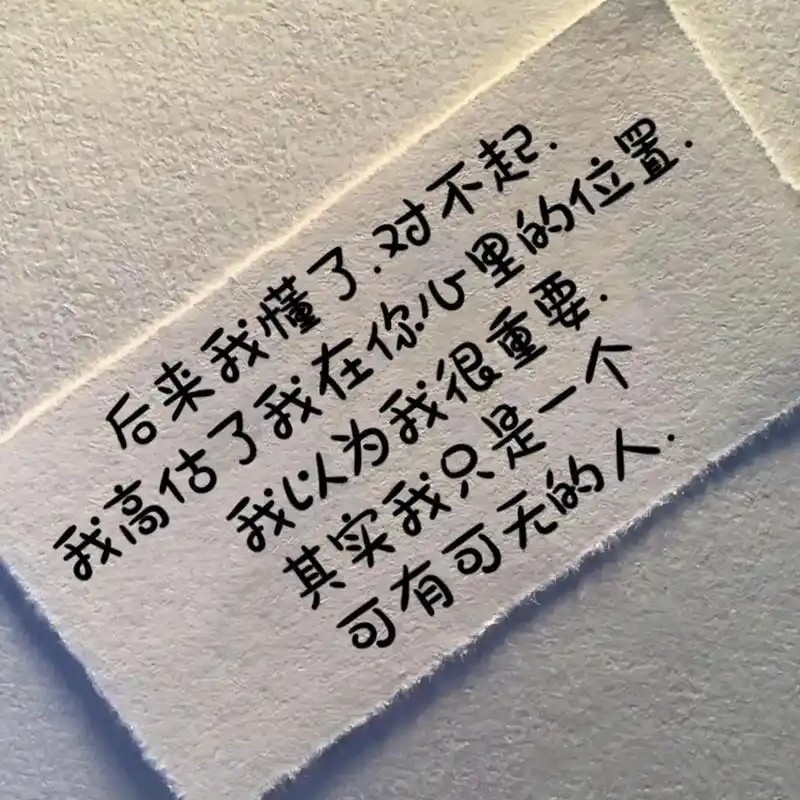 后来我懂了.对不起.
我高估了我在你心里的位置.
我以为我很重要.
其实我只是一个
可有可无的人.